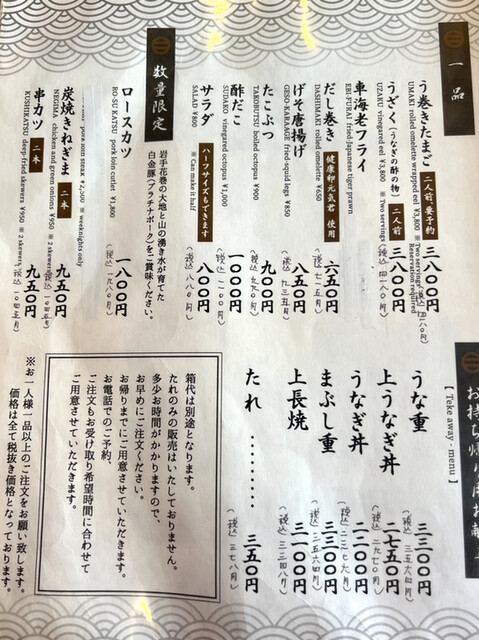 一品
う巻きたまご 二人前 要予約 三八〇〇円
UMAKI rolled omelette wrapped eel ¥3,800 ※ Two servings Reservation required
うざく(うなぎの酢の物) 二人前 三八〇〇円
UZAKU vinegared eel ¥3,800 ※ Two servings
(税込 四一八〇円)
車海老フライ
EBI FURAI fried Japanese tiger prawn
だし巻き 健康卵元気君 使用 六五〇円
DASHIMAKI rolled omelette ¥650
(税込 七一五円)
げそ唐揚げ 八五〇円
GESO-KARAAGE fried-squid legs ¥850
(税込 九三五円)
たこぶつ 九〇〇円
TAKOBUTSU boiled octopus ¥900
(税込 九九〇円)
酢だこ 一〇〇〇円
SUDAKO vinegared octopus ¥1,000
(税込 一一〇〇円)
サラダ ハーフサイズもできます 八〇〇円
SALAD ¥800 ※ Can make it half
(税込 八八〇円)
数量限定
岩手花巻の大地と山の湧き水が育てた
白金豚(プラチナポーク)をご賞味ください。
ロースカツ 一八〇〇円
RO-SU KATSU pork loin cutlet ¥1,800
(税込 一九八〇円)
pork loin steak ¥2,500 ※ weeknights only
炭焼きねぎま 二本 九五〇円
NEGIMA chicken and green onions ¥950 ※ 2 skewers
(税込 一〇四五円)
串カツ 二本 九五〇円
KUSHIKATSU deep-fried skewers ¥950 ※ 2 skewers
(税込 一〇四五円)
【 Teke away - menu 】
うな重 三三〇〇円
(税込 三五六四円)
上うなぎ丼 二七五〇円
(税込 二九七〇円)
うなぎ丼 二二〇〇円
(税込 二三七六円)
まぶし重 三三〇〇円
(税込 三五六四円)
上長焼 三一〇〇円
(税込 三三四八円)
たれ ・・・・・・・・・ 三五〇円
(税込 三七八円)
箱代は別途となります。
たれのみの販売はいたしておりません。
多少お時間がかかりますので、
お早めにご注文ください。
お帰りまでにご用意させていただきます。
お電話でのご予約、
ご注文もお受け取り希望時間に合わせて
ご用意させていただきます。
※お一人様一品以上のご注文をお願い致します。
価格は全て税抜き価格となっております。